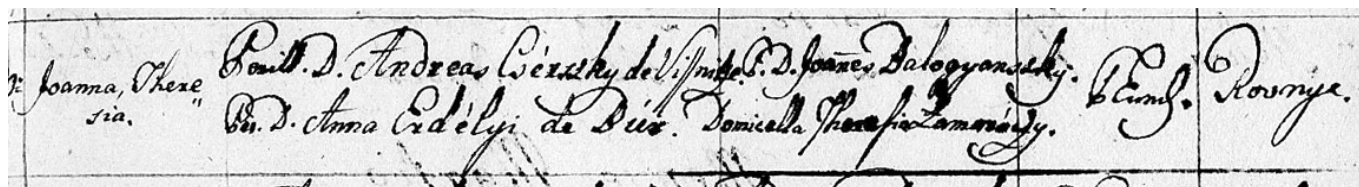 Joanna, There„
sia.
Perill. D. Andreas Csérszky de Visnitze.
Per. D. Anna Erdélyi de Dúr.
P. D. Joan̄es Balogyanszky.
Domicella Theresia Zamaróczy.
P Eund.
Rovnye.